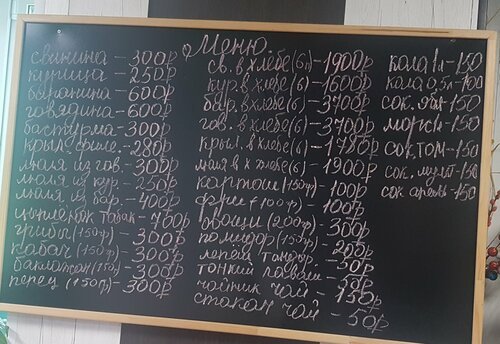 Меню.
свинина - 300р
курица - 250р
баранина - 600р
говядина - 600р
бастурма - 300р
крыл. - 280р
люля из гов. - 300р
люля из кур. - 250р
люля из бар. - 400р
цыпленок табак - 700р
грибы (150гр) - 300р
кабач (150гр) - 300р
баклажан (150) - 300р
перец (150гр) - 300р
св. в хлебе (бл) - 1900р
кур. в хлебе (б) - 1600р
бар. в хлебе (б) - 3700р
гов. в хлебе (б) - 3700р
крыл. в хлебе (б) - 1780р
люля в хлебе (б) - 1900р
картош (150гр) - 100р
фри (100гр) - 100р
овощи (200гр) - 300р
помидор (150гр) - 200р
лепеш тандыр - 50р
тонкий лаваш - 50р
чайник чай - 150р
стакан чай - 50р
кола 1л - 150
кола 0,5л - 100
сок. ябл - 150
морс - 150
сок том - 150
сок. мульт - 150
сок апель - 150